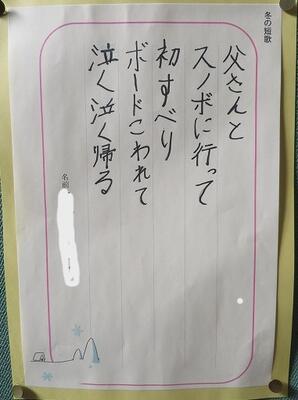 冬の短歌
父さんと
スノボに行って
初すべり
ボードこわれて
泣く泣く帰る
名前